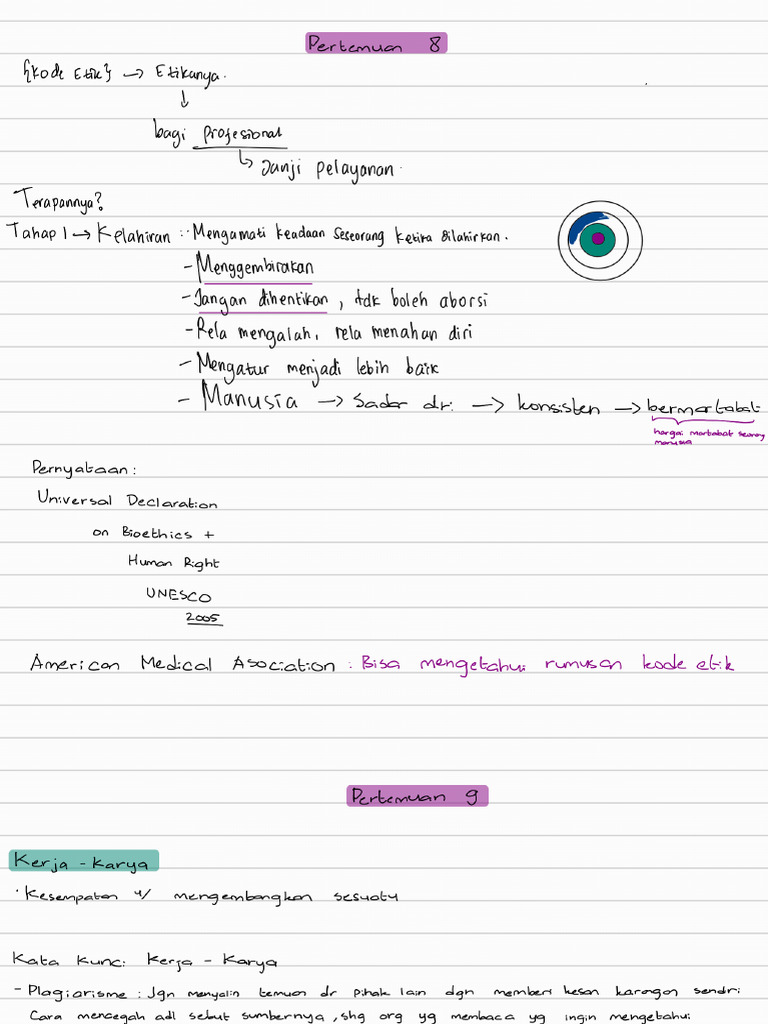 Pertemuan 8
{Kode Etik} → Etikanya.
↓
bagi Profesional
↳ Janji pelayanan.
Terapannya?
Tahap 1 → Kelahiran :: Mengamati keadaan seseorang ketika dilahirkan.
- Menggembirakan
- Jangan dihentikan, tdk boleh aborsi
- Rela mengalah, rela menahan diri
- Mengatur menjadi lebih baik
- Manusia → Sadar dri → konsisten → bermartabat
hargai martabat seorang manusia
Pernyataan :
Universal Declaration
on Bioethics +
Human Right
UNESCO
2005
American Medical Asociation : Bisa mengetahui rumusan kode etik
Pertemuan 9
Kerja - Karya
· Kesempatan u/ mengembangkan sesuatu
Kata Kunci: Kerja - Karya
- Plagiarisme : Jgn menyalin temuan dr pihak lain dgn memberi kesan karangan sendiri
Cara mencegah adl sebut sumbernya, shg org yg membaca yg ingin mengetahui